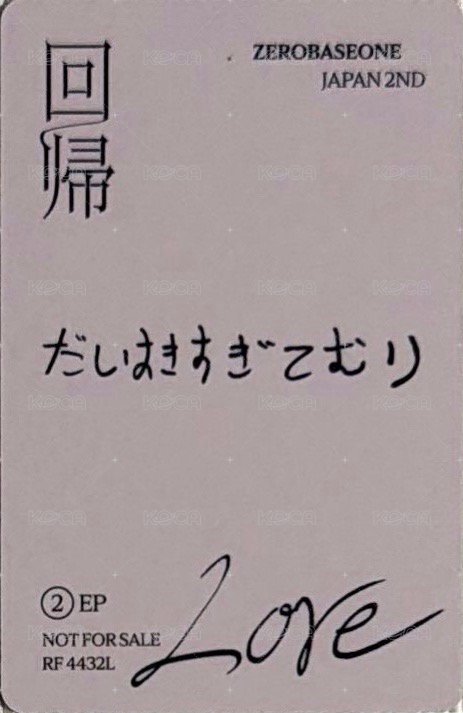 回帰
ZEROBASEONE
JAPAN 2ND
だいすきすぎてむり
② EP
NOT FOR SALE
RF 4432L
Love